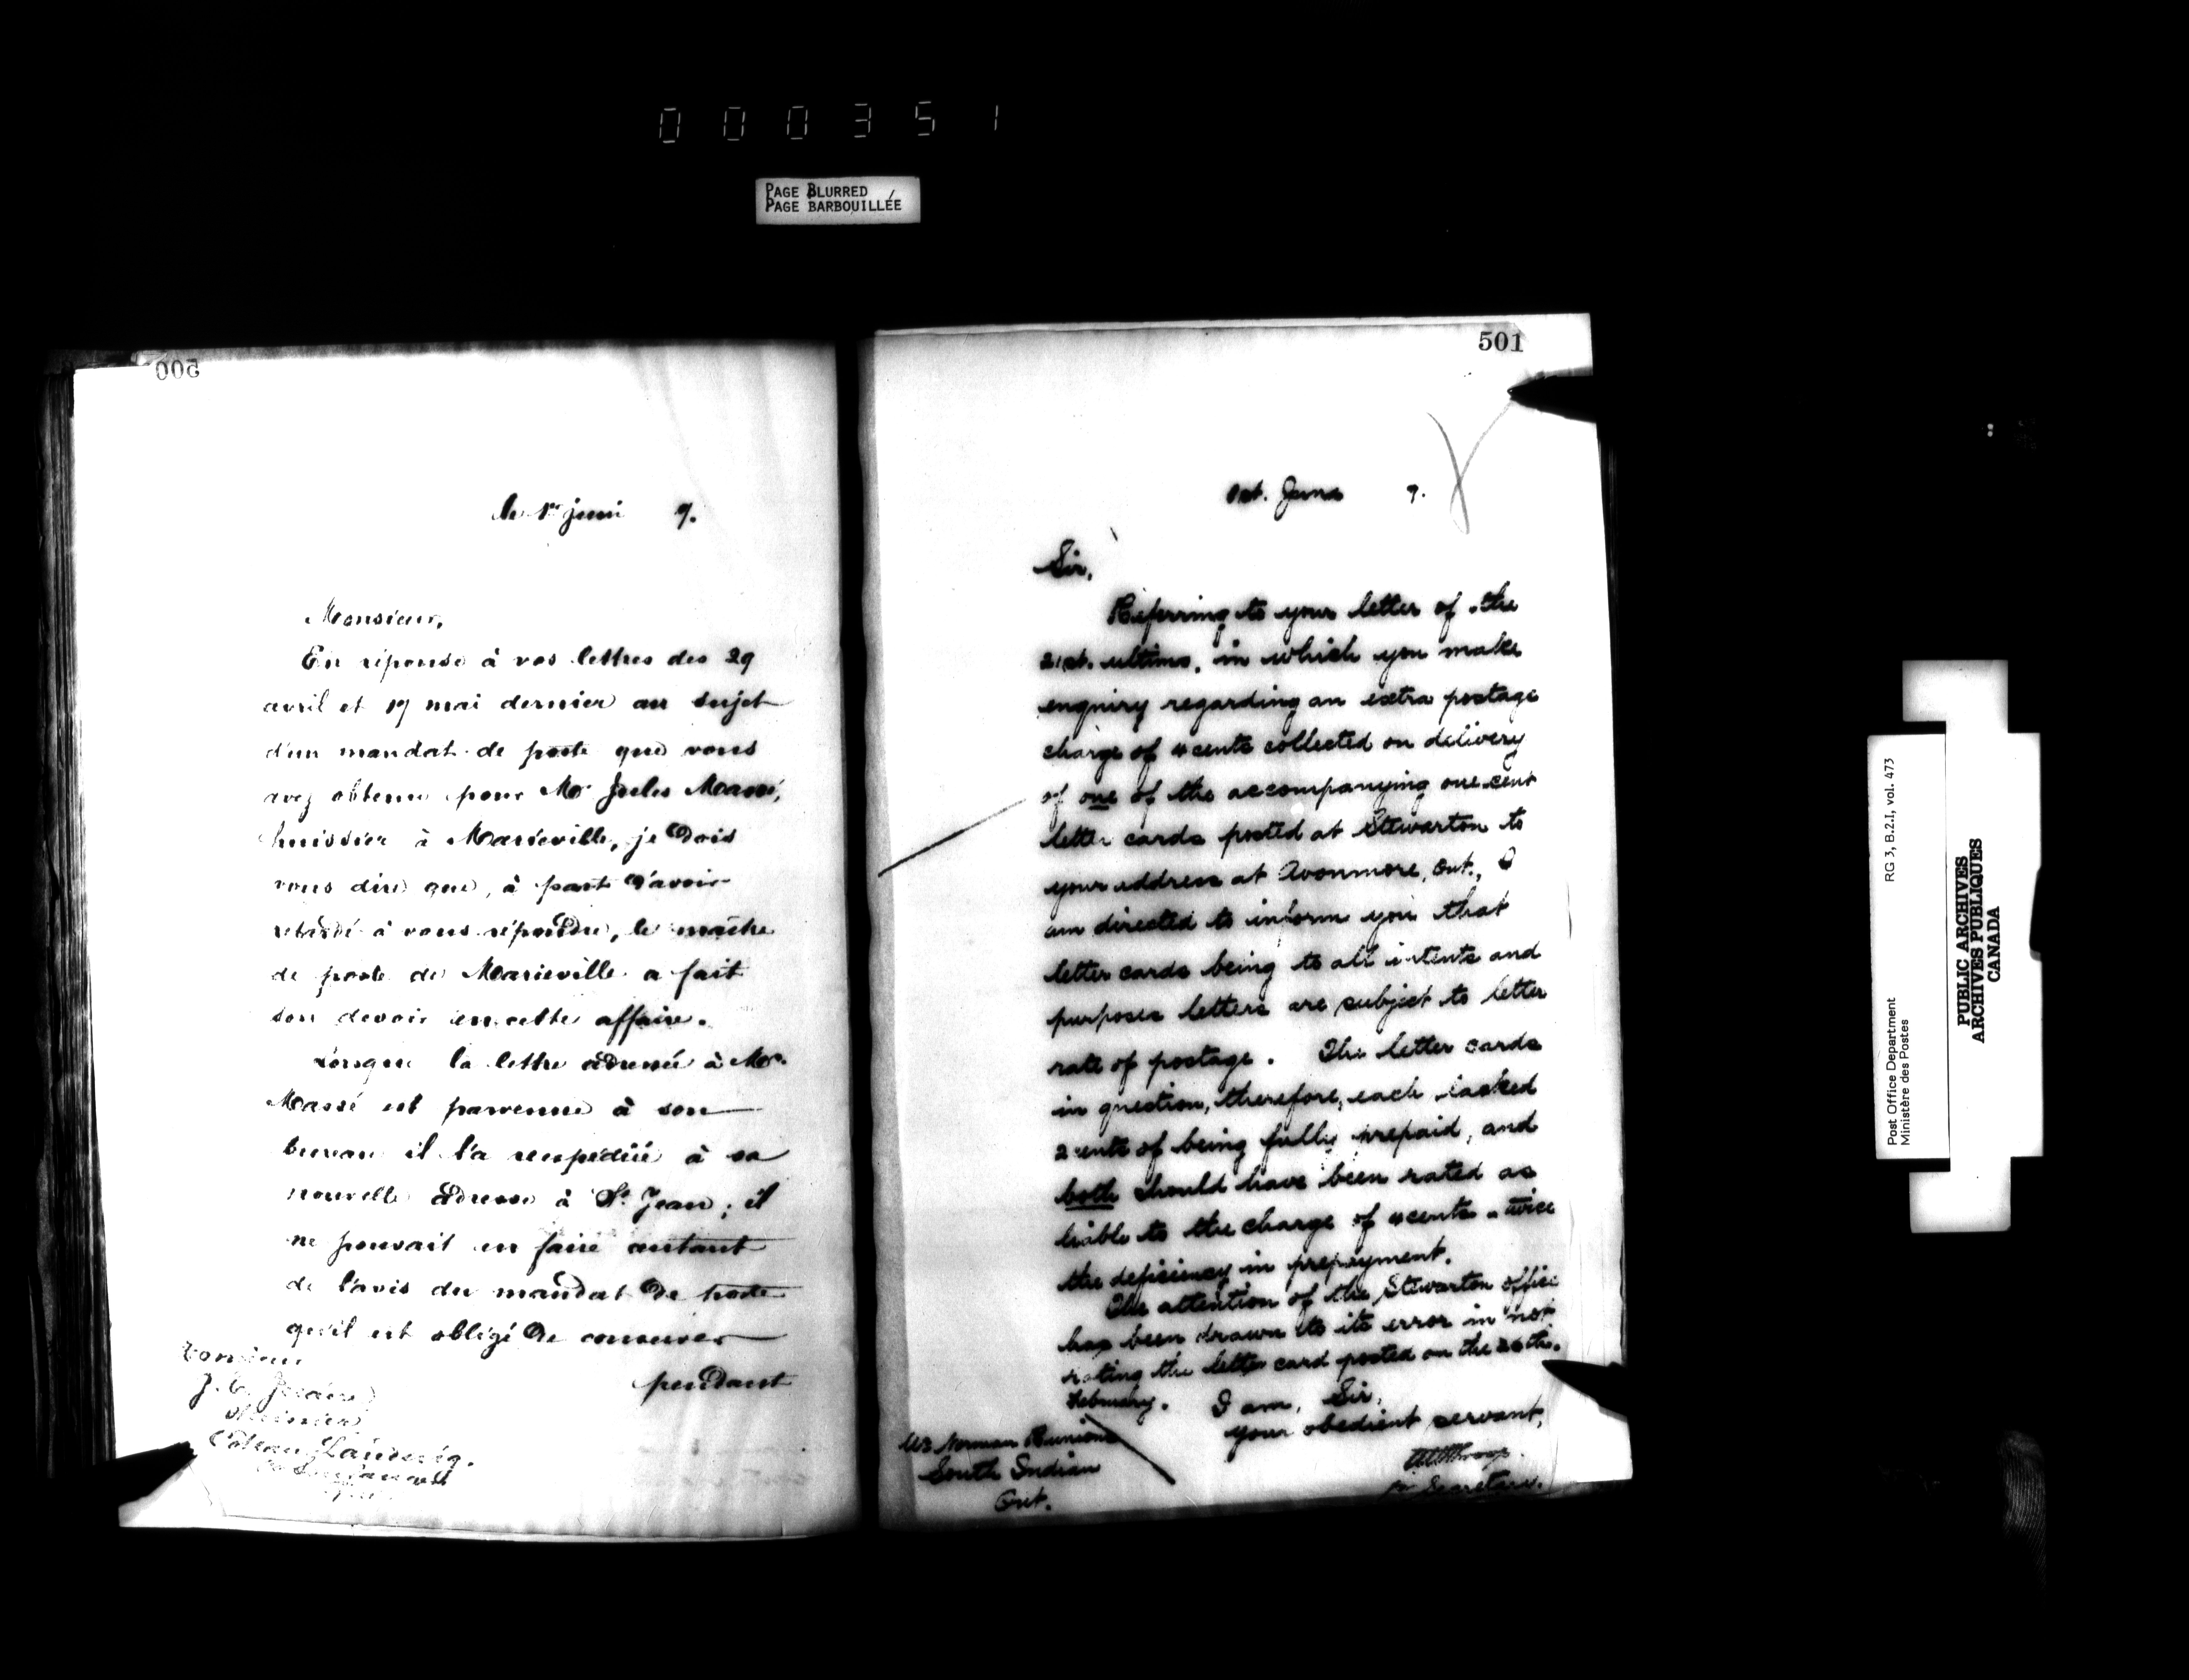 000351
PAGE BLURRED
PAGE BARBOUILLÉE
500
le 1er juin 7.
Monsieur,
En réponse à vos lettres des 29
avril et 19 mai dernier au sujet
d'un mandat de poste que vous
avez obtenu pour Mr Jules Massé,
huissier à Marieville, je dois
vous dire que, à part d'avoir
retardé à vous répondre, le maître
de poste de Marieville a fait
son devoir en cette affaire.
Lorsque la lettre adressée à Mr.
Massé est parvenue à son
bureau il l'a réexpédiée à sa
nouvelle adresse à St. Jean; il
ne pouvait en faire autant
de l'avis du mandat de poste
qu'il est obligé de conserver
pendant
Monsieur
J. E.
Huissier
Coteau Landing.
501
1st. June 7.
Sir,
Referring to your letter of the
21st. ultimo, in which you make
enquiry regarding an extra postage
charge of 4 cents collected on delivery
of one of the accompanying one cent
letter cards posted at Stewarton to
your address at Avonmore, Ont., I
am directed to inform you that
letter cards being to all intents and
purposes letters are subject to letter
rate of postage. The letter cards
in question, therefore, each lacked
2 cents of being fully prepaid, and
both should have been rated as
liable to the charge of 4 cents - twice
the deficiency in prepayment.
The attention of the Stewarton office
has been drawn to its error in not
rating the letter card posted on the 26th.
February. I am, Sir,
Your obedient servant,
for Secretary.
Mr Norman
South Indian
Ont.
RG 3, B.2.I, vol. 473
Post Office Department
Ministère des Postes
PUBLIC ARCHIVES
ARCHIVES PUBLIQUES
CANADA